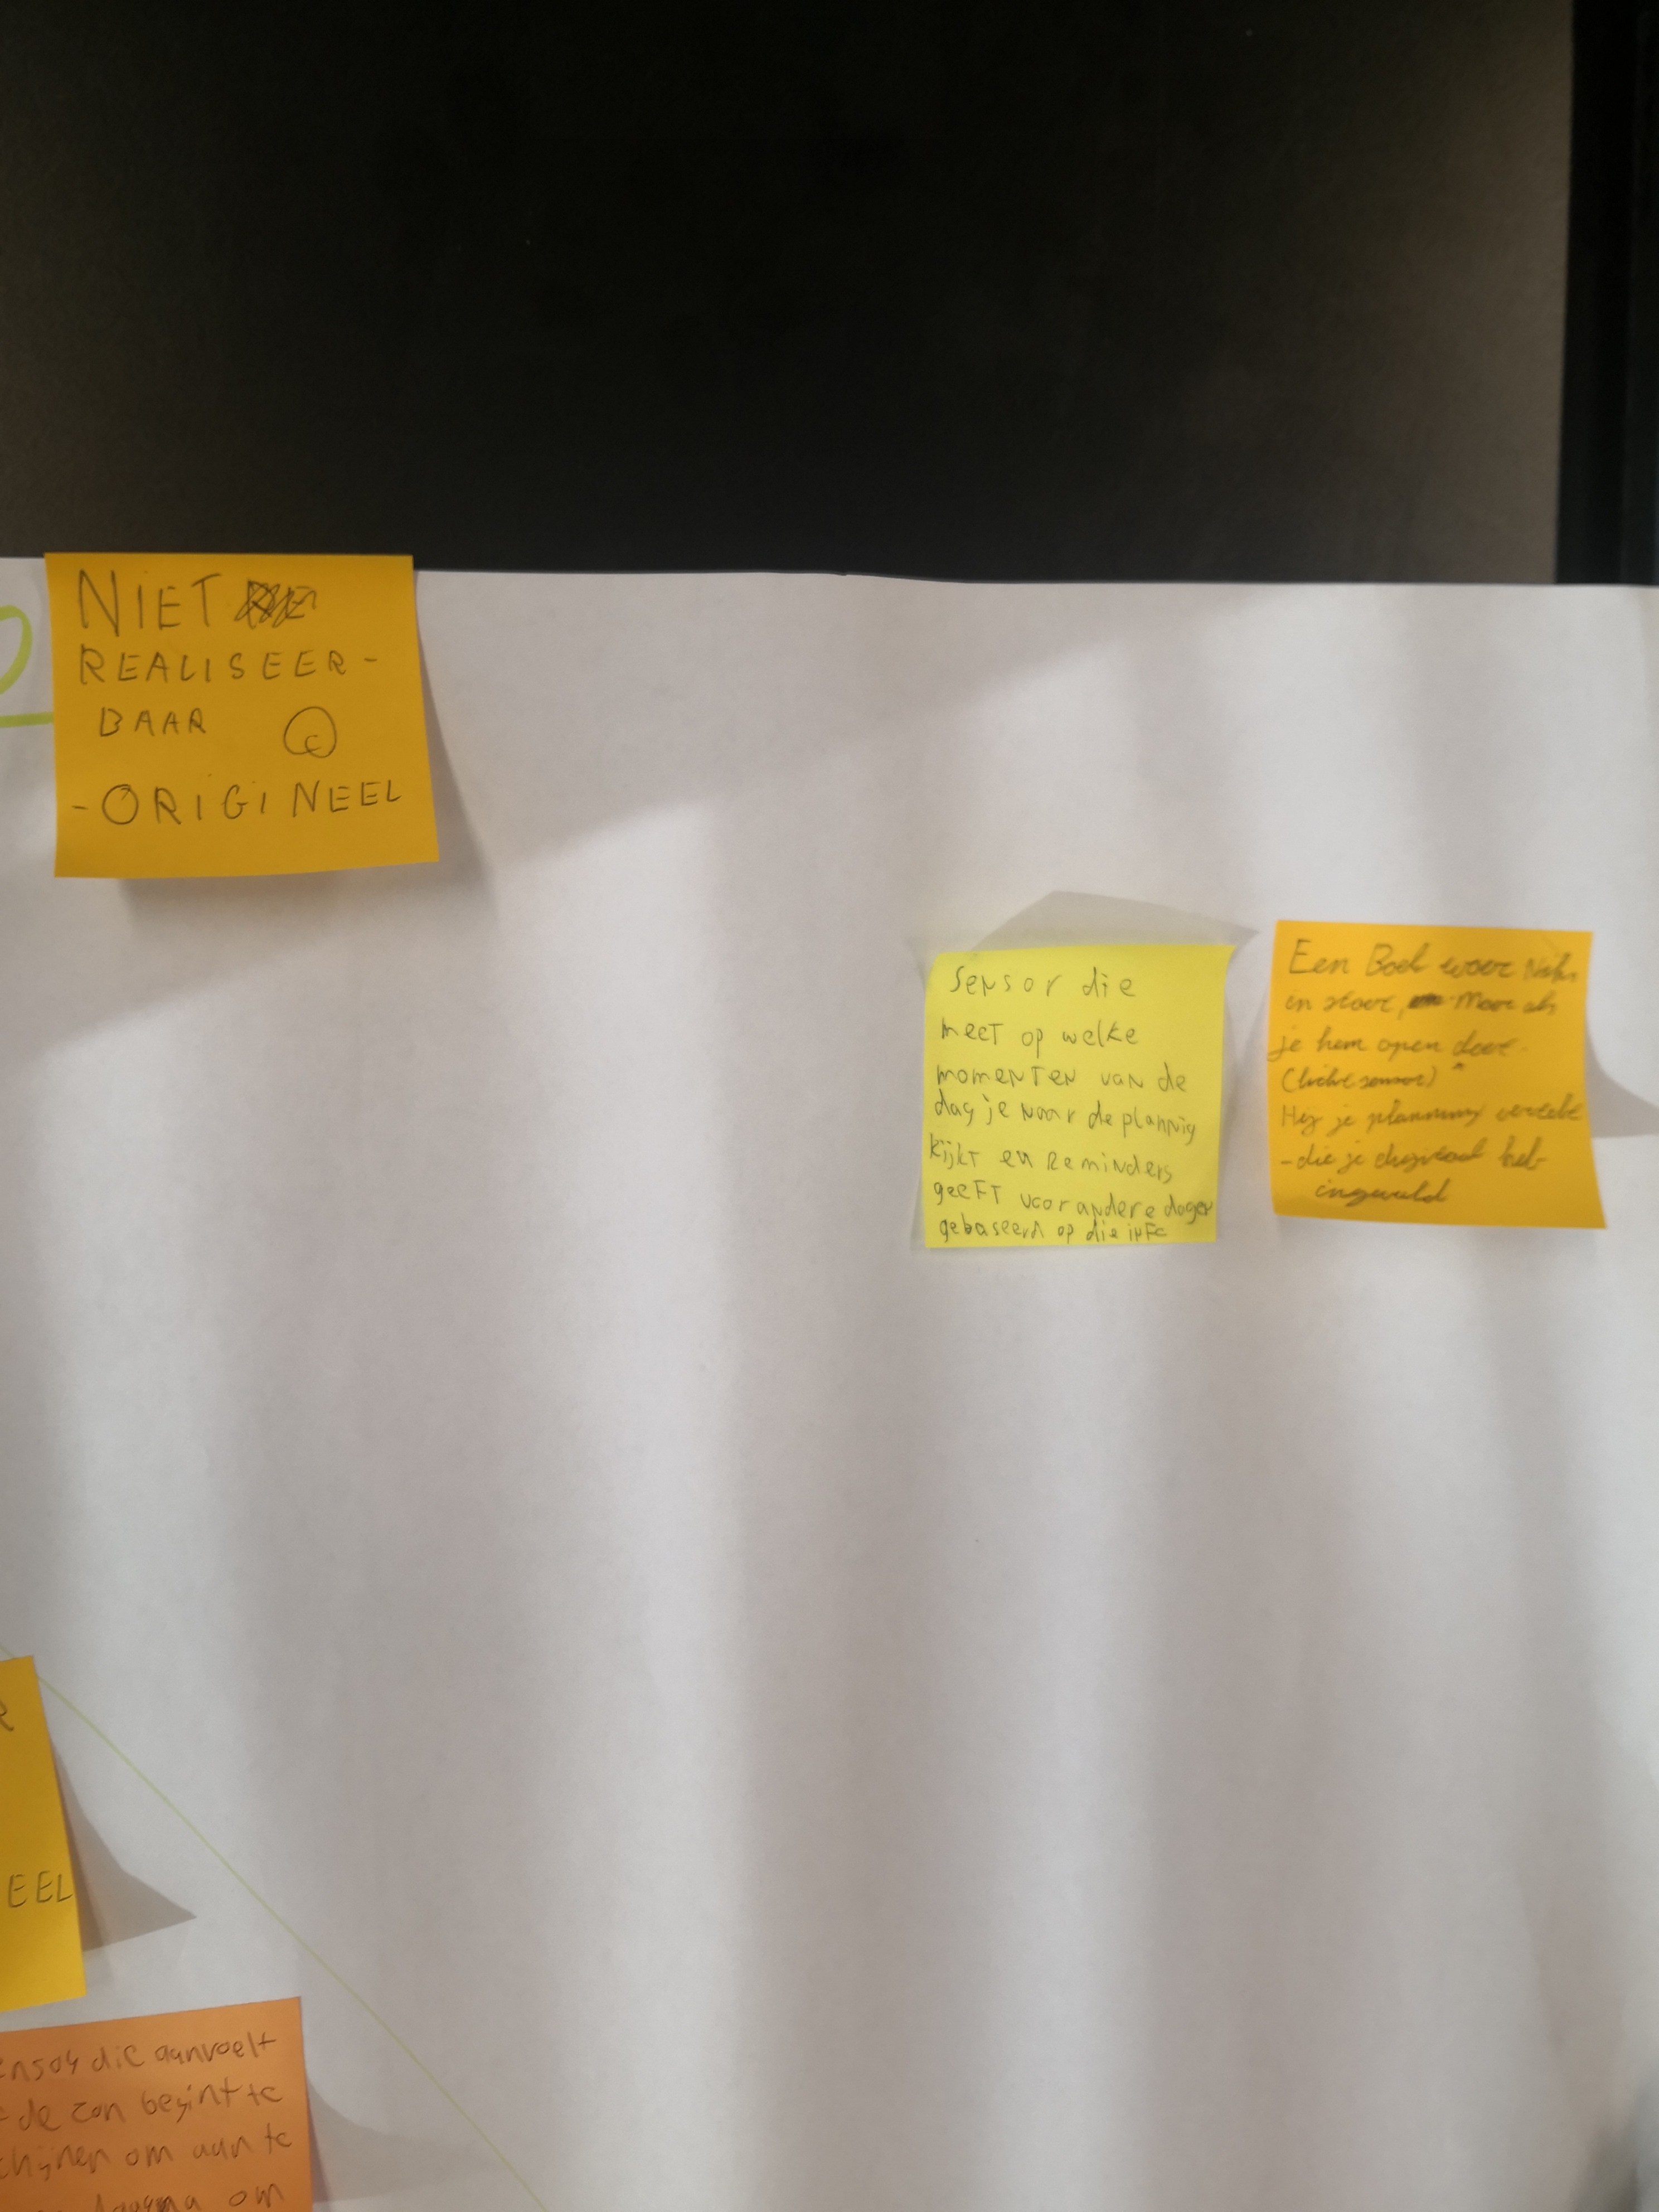 NIET
REALISEER-
BAAR C
- ORIGINEEL
Sensor die
meet op welke
momenten van de
dag je naar de plannig
kijkt en Reminders
geeft voor andere dagen
gebaseerd op die info
Een Boek waar Niks
in staat, Maar als
je hem open doet.
(licht sensor)
Hij je planning vertelt
- die je digitaal heb
ingevuld
R
EEL
ensor die aanvoelt
de zon begint te
chijnen om aan te
om